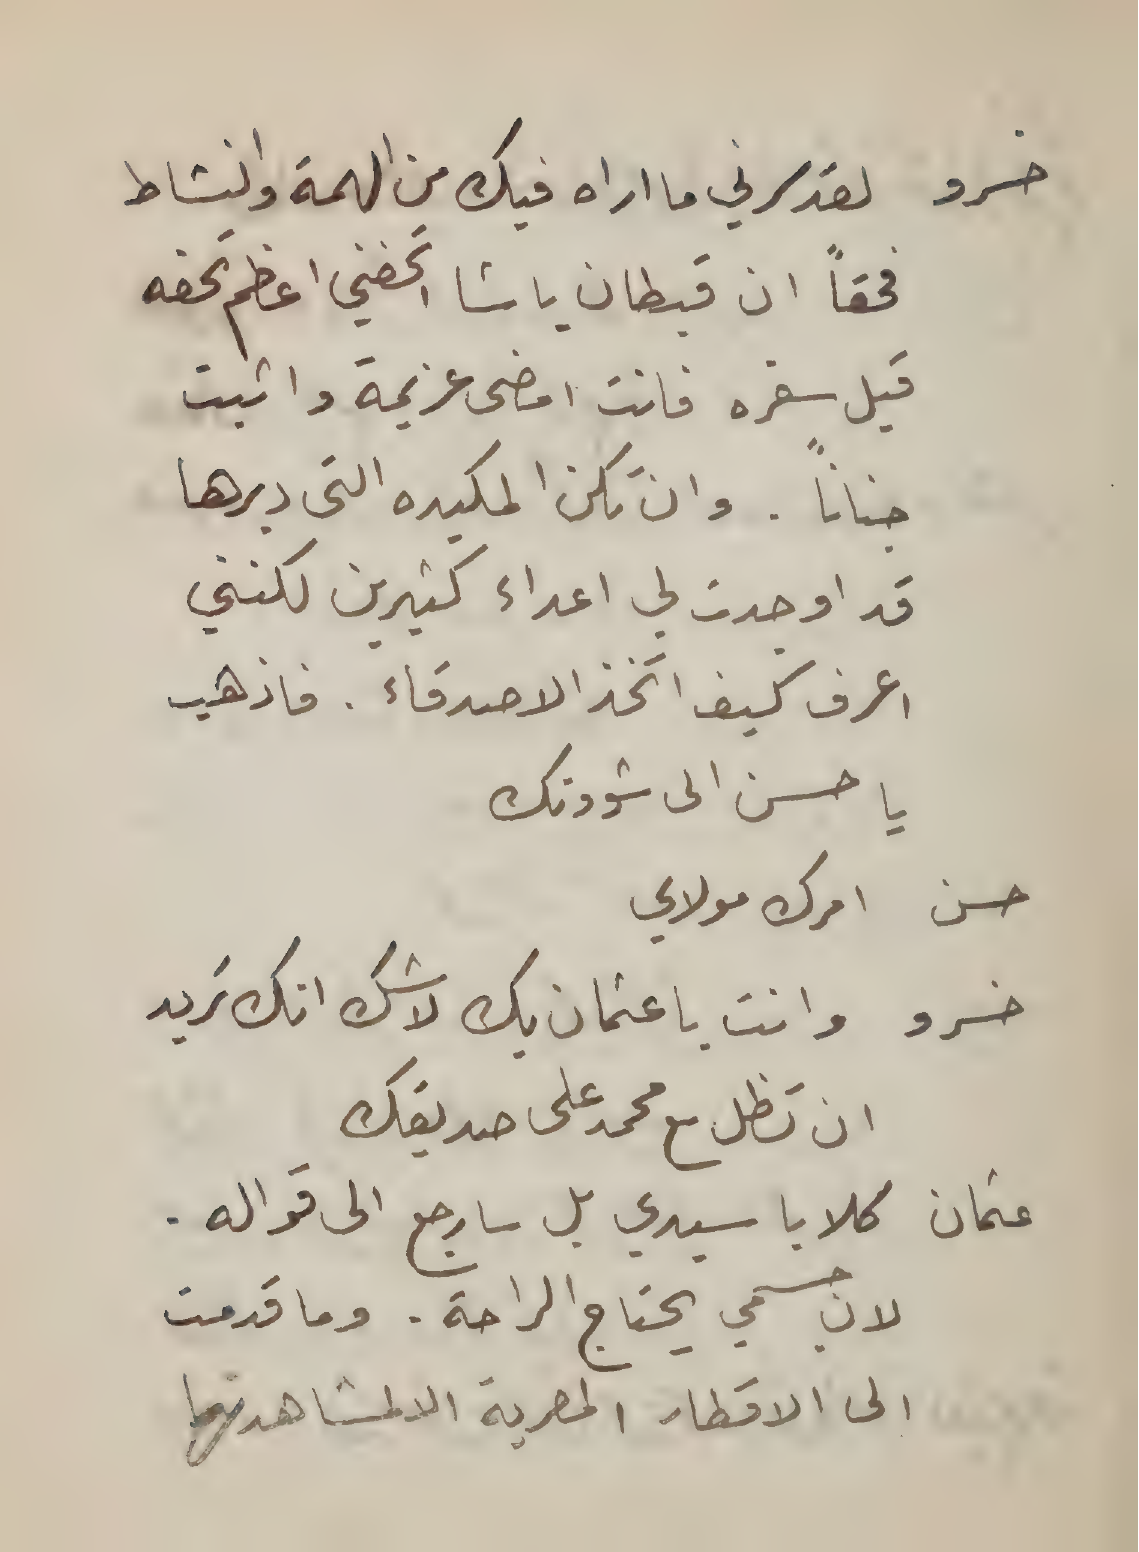 خسرو لقد سرني ما اراه فيك من الهمة والنشاط
فحقاً ان قبطان باشا اتحفني اعظم تحفه
قبل سفره فانت امضى عزيمة واثبت
جناناً . وان تكن المكيده التى دبرها
قد اوجدت لي اعداء كثيرين لكنني
اعرف كيف اتخذ الاصدقاء . فاذهب
يا حسن الى شوونك
حسن امرك مولاي
خسرو وانت يا عثمان بك لاشك انك تريد
ان تظل مع محمد على صديقك
عثمان كلا يا سيدي بل سارجع الى قواله .
لان جسمي يحتاج الراحة . وما قدمت
الى الاقطار المصرية الا لمشاهدتها